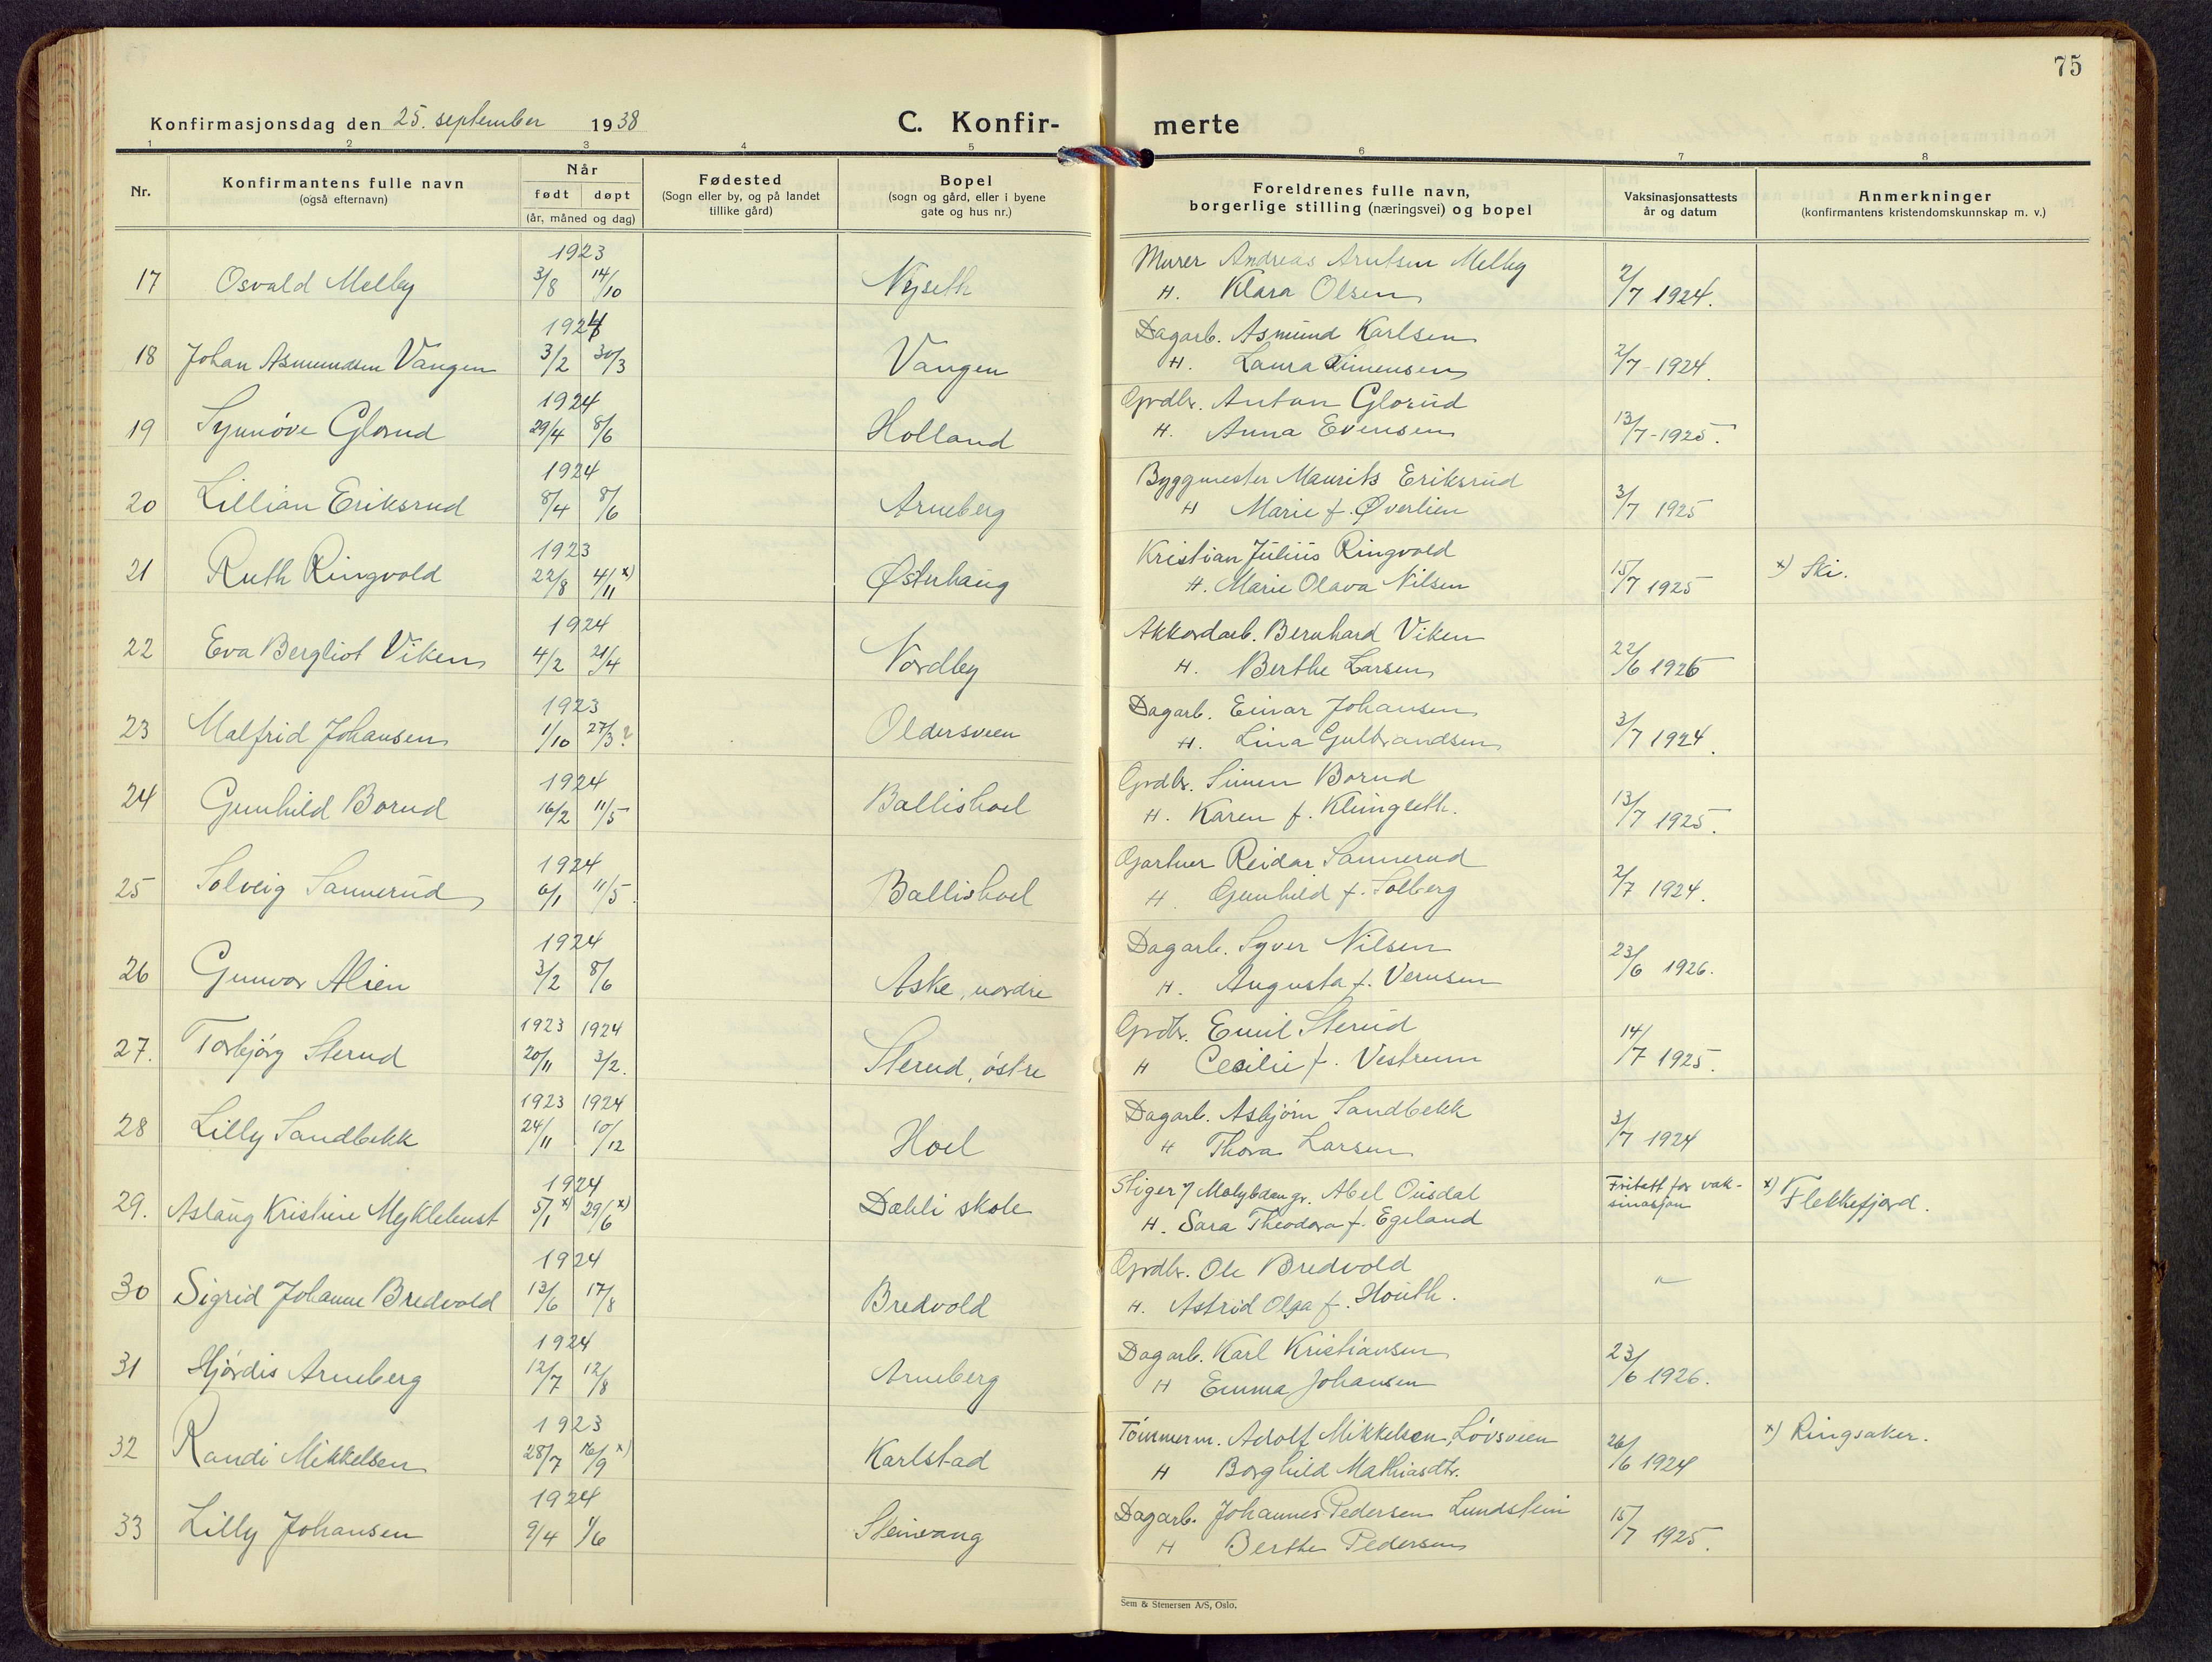 75
Konfirmasjonsdag den 25. september 1938
C. Konfir- merte
1 2 3 4 5 6 7 8
Nr.
Konfirmantens fulle navn
(også efternavn)
Når
født døpt
(år, måned og dag)
Fødested
(Sogn eller by, og på landet
tillike gård)
Bopel
(sogn og gård, eller i byene
gate og hus nr.)
Foreldrenes fulle navn,
borgerlige stilling (næringsvei) og bopel
Vaksinasjonsattests
år og datum
Anmerkninger
(konfirmantens kristendomskunnskap m. v.)
1923 Murer Andreas Arntsen Melby
17 Osvald Melby 3/8 14/10 Nyseth H. Klara Olsen 2/7 1924.
1924 Dagarb. Asmund Karlsen
18 Johan Asmundsen Vangen 3/2 30/3 Vangen H. Laura Simensen 2/7-1924.
1924 Grdbr. Anton Glorud
19 Synnöve Glorud 29/4 8/6 Holland H. Anna Evensen 13/7-1925.
1924 Byggmester Maurits Eriksrud
20 Lillian Eriksrud 8/4 8/6 Arneberg H Marie f. Øverlien 3/7 1925
1923 Kristian Julius Ringvold
21 Ruth Ringvold 22/8 4/11 x) Østerhaug H. Marie Olava Nilsen 15/7 1925 x) Ski.
1924 Akkordarb. Bernhard Viken
22 Eva Bergliot Viken 4/2 21/4 Nordby H. Berthe Larsen 22/6 1926
1923 Dagarb. Einar Johansen
23 Malfrid Johansen 1/10 27/3? Oldersveen H. Lina Gulbrandsen 3/7 1924.
1924 Grdbr. Simen Borud
24 Gunhild Borud 16/2 11/5 Ballishoel H. Karen f. 13/7 1925.
1924 Gartner Reidar Sannerud
25 Solveig Sannerud 6/1 11/5. Ballishoel H. Gunhild f. Solberg 2/7 1924.
1924 Dagarb. Syver Nilsen
26 Gunvor Alien 3/2 8/6 Aske, nordre H. Augusta f. Vernsen 23/6 1926.
1923 1924 Grdbr. Emil Sterud
27. Torbjörg Sterud 20/11 3/2. Sterud, östre H Cecilie f. Vestrum 14/7 1925.
1923 1924 Dagarb. Asbjörn Sandbekk
28 Lilly Sandbekk 24/11 10/12 Hoel H Thora Larsen 3/7 1924
1924 Stiger v/ Molybdengr. Abel Ousdal Fritatt for vak-
29. Aslaug Kristine Myklebust 5/1 x) 29/6 x) Dæhli skole H. Sara Theodora f. Egeland sinasjon x) Flekkefjord.
1924 Grdbr. Ole Bredvold
30 Sigrid Johanne Bredvold 13/6 17/8 Bredvold H. Astrid Olga f. Houth. "
1924 Dagarb. Karl Kristiansen
31 Hjördis Arneberg 12/7 12/8 Arneberg H Emma Johansen 23/6 1926.
1923 Tömmerm. Adolf Mikkelsen, Lövsveen
32 Randi Mikkelsen 28/7 16/9 x) Karlstad H Borghild Mathiasdtr. 26/6 1924 x) Ringsaker.
1924 Dagarb. Johannes Pedersen Lundstein
33 Lilly Johansen 9/4 1/6 Steinvang H Berthe Pedersen 15/7 1925.
Sem & Stenersen A/S, Oslo.